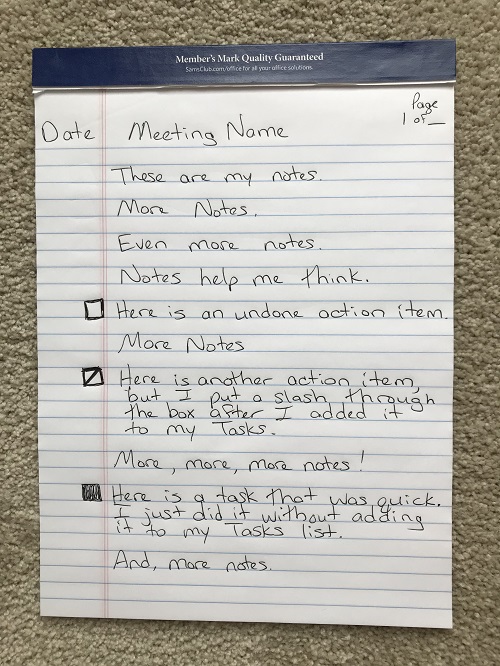 Member's Mark Quality Guaranteed
SamsClub.com/office for all your office solutions.
Page
1 of _
Date Meeting Name
These are my notes.
More Notes.
Even more notes.
Notes help me think.
Here is an undone action item.
More Notes
Here is another action item,
but I put a slash through
the box after I added it
to my Tasks.
More, more, more notes!
Here is a task that was quick.
I just did it without adding
it to my Tasks list.
And, more notes.